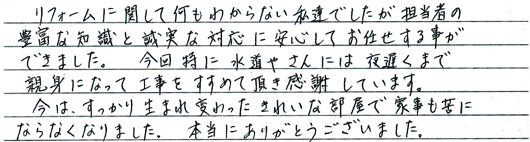 リフォームに関して何もわからない私達でしたが担当者の
豊富な知識と誠実な対応に安心してお任せする事が
できました。 今回特に水道やさんには夜遅くまで
親身になって工事をすすめて頂き感謝しています。
今は、すっかり生まれ変わったきれいな部屋で家事も苦に
ならなくなりました。 本当にありがとうございました。